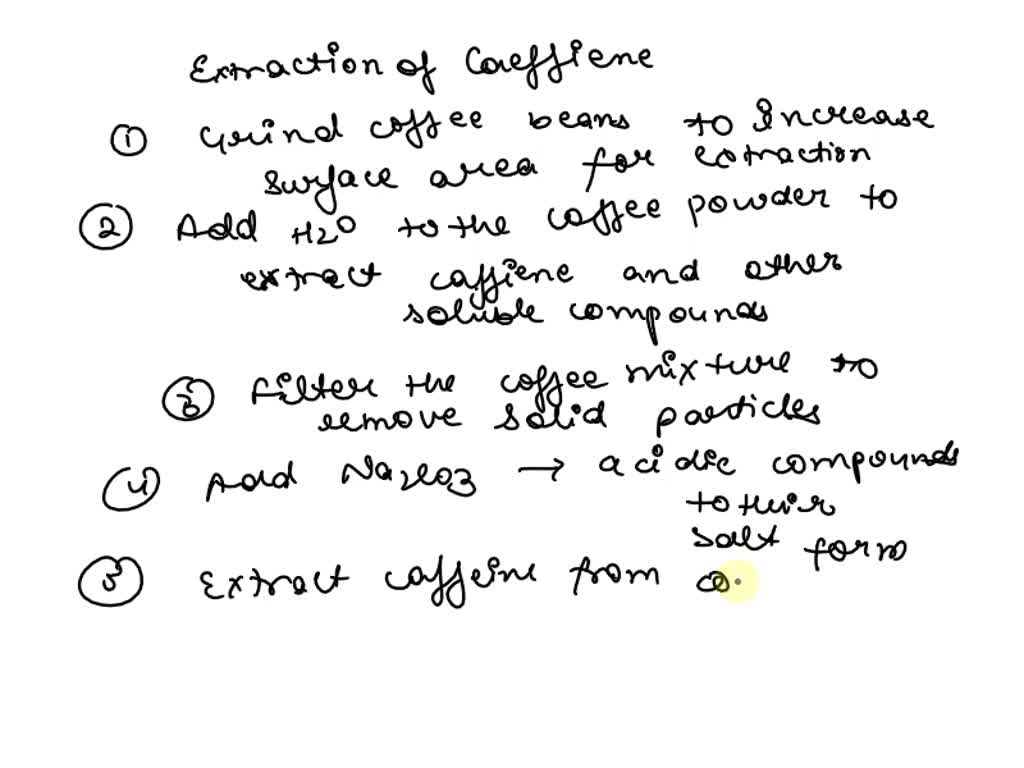 Extraction of Caeffiene
① Grind coffee beans to increase
surface area for extraction
② Add H2O to the coffee powder to
extract caffiene and other
soluble compounds
③ Filter the coffee mixture to
remove solid particles
④ Add Na2CO3 → acidic compounds
to their
salt form
⑤ Extract caffeine from